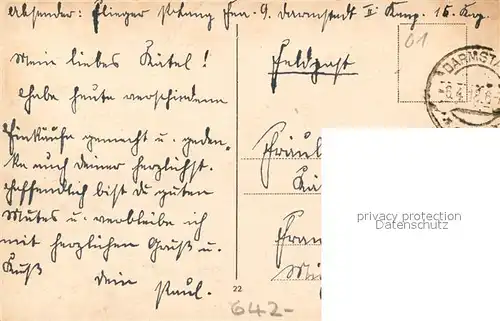 Absender: Flieger Paul Fea. 9. Darmstadt II Komp. 15. Krg.
Mein liebes Kätel!
Habe heute verschiedene
Einkäufe gemacht u. geden-
ke auch deiner herzlichst.
Hoffentlich bist du guten
Mutes u. verbleibe ich
mit herzlichen Gruß u.
Kuß
Dein
Paul.
Feldpost
61
DARMSTA
Fräul
Kä
Fran
22
642-
privacy protection
Datenschutz